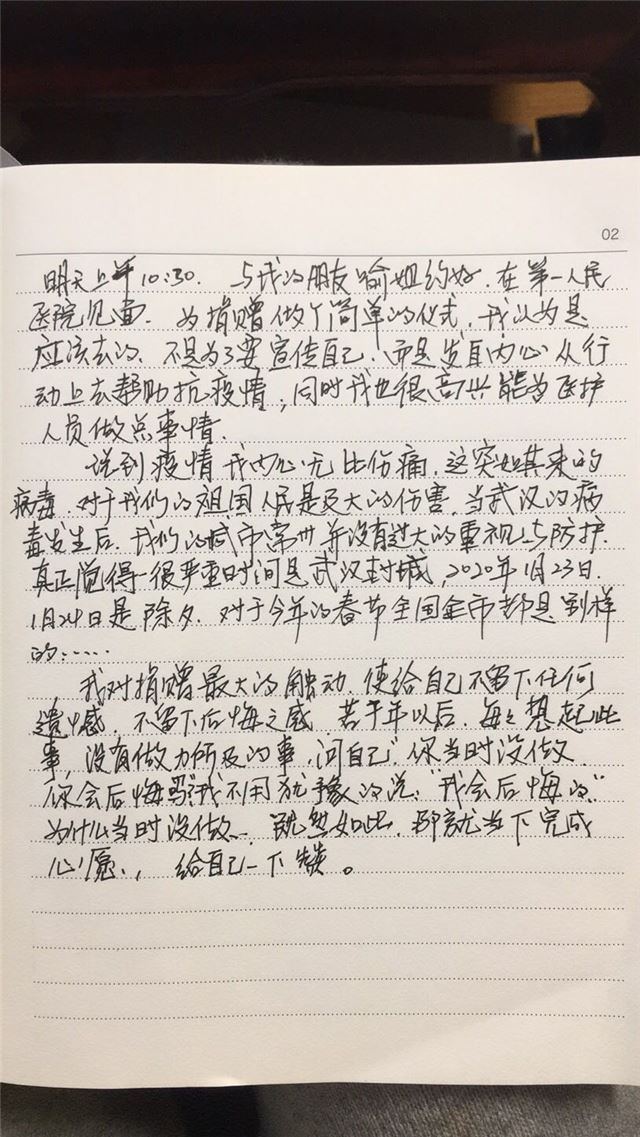 02
明天上午10:30. 与我的朋友喻姐约好.在第一人民
医院见面. 为捐赠做个简单的仪式.我认为是
应该去的.不是为了要宣传自己.而是发自内心从行
动上去帮助抗疫情,同时我也很高兴能为医护
人员做点事情.
说到疫情我内心无比伤痛.这突如其来的
病毒.对于我们的祖国人民是巨大的伤害.当武汉的病
毒发生后.我们的城市常州并没有过大的重视与防护.
真正觉得很严重时间是武汉封城,2020年1月23日.
1月24日是除夕.对于今年的春节全国金市都是别样
的……
我对捐赠最大的触动.使给自己不留下任何
遗憾感,不留下后悔之感 若干年以后.每每想起此
事,没有做力所及的事.问自己“你当时没做.
你会后悔吗?我不用犹豫的说:“我会后悔的”
为什么当时没做. 既然如此.那就当下完成
心愿., 给自己一下赞。